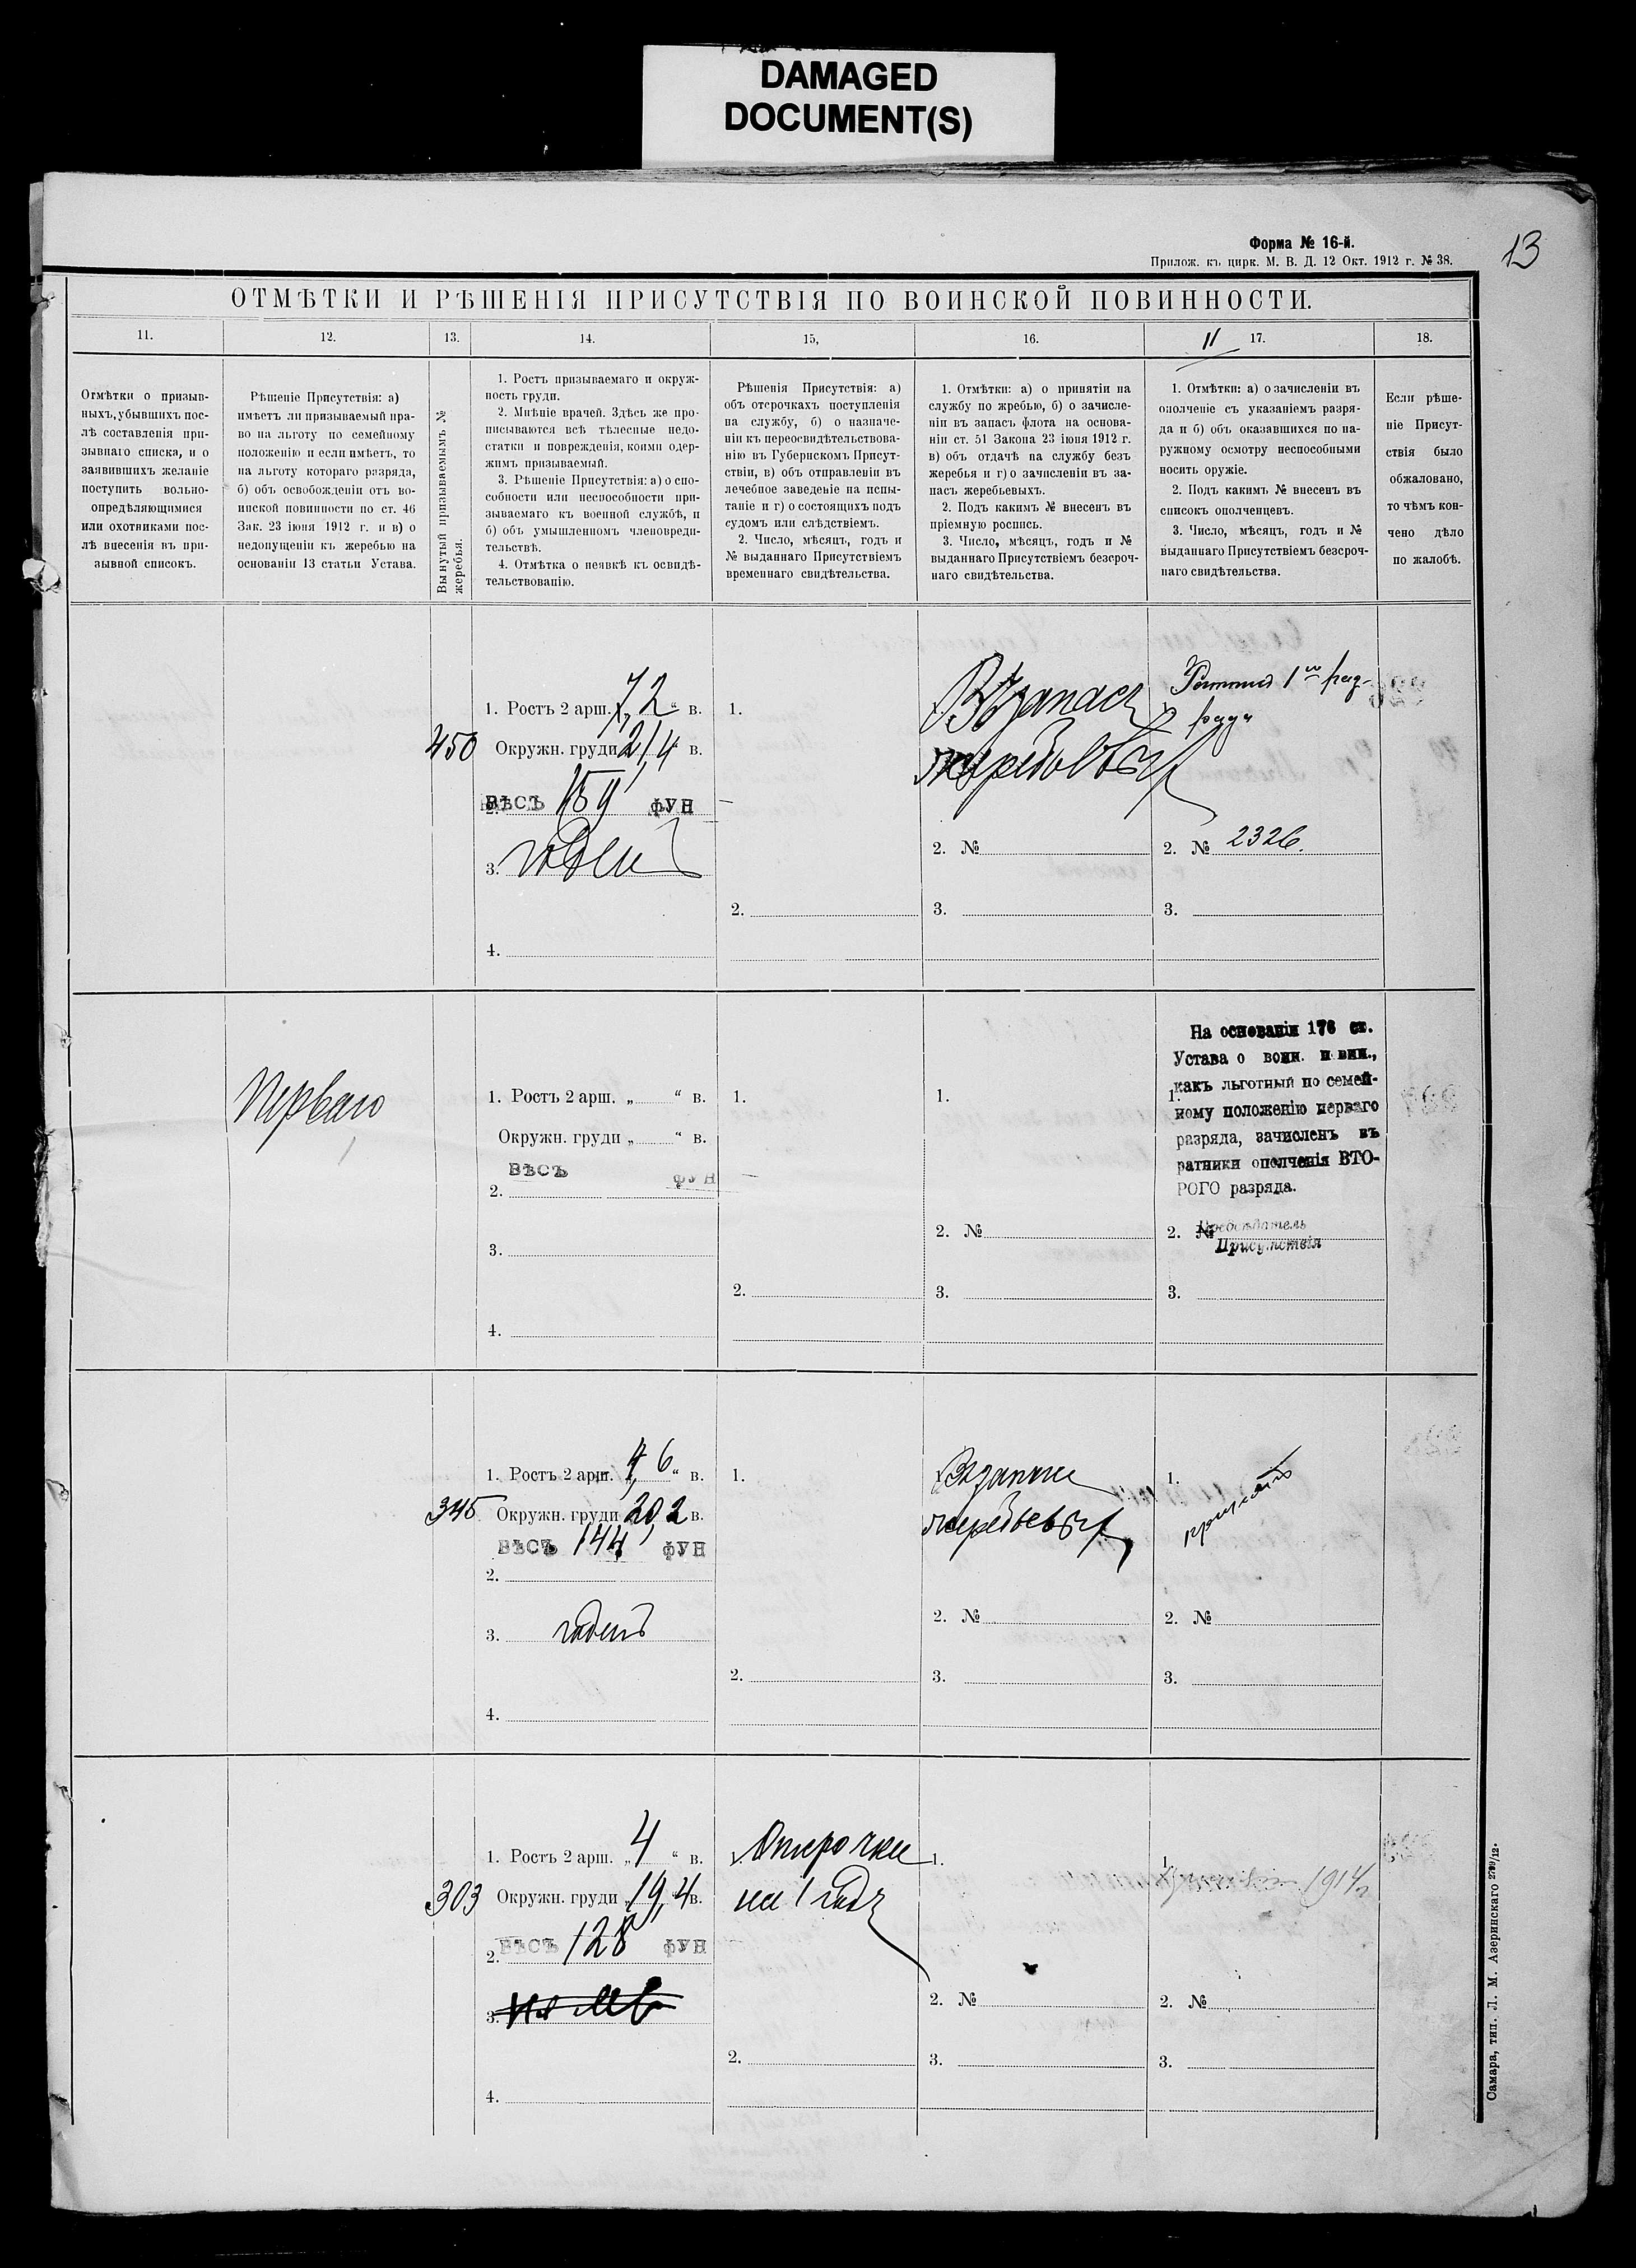 DAMAGED
DOCUMENT(S)
Форма № 16-й.
Прилож. къ цирк. М. В. Д. 12 Окт. 1912 г. № 38.
13
ОТМѢТКИ И РѢШЕНІЯ ПРИСУТСТВІЯ ПО ВОИНСКОЙ ПОВИННОСТИ.
11.
12.
13.
14.
15,
16.
11
17.
18.
Отмѣтки о призыв-
ныхъ, убывшихъ пос-
лѣ составленія при-
зывнаго списка, и о
заявившихъ желаніе
поступить вольно-
опредѣляющимися
или охотниками пос-
лѣ внесенія въ при-
зывной списокъ.
Рѣшеніе Присутствія: а)
имѣетъ ли призываемый пра-
во на льготу по семейному
положенію и если имѣетъ, то
на льготу котораго разряда,
б) объ освобожденіи отъ во-
инской повинности по ст. 46
Зак. 23 іюня 1912 г. и в) о
недопущеніи къ жеребью на
основаніи 13 статьи Устава.
Вынутый призываемымъ №
жеребья.
1. Ростъ призываемаго и окруж-
ность груди.
2. Мнѣніе врачей. Здѣсь же про-
писываются всѣ тѣлесные недо-
статки и поврежденія, коими одер-
жимъ призываемый.
3. Рѣшеніе Присутствія: а) о спо-
собности или неспособности при-
зываемаго къ военной службѣ, и
б) объ умышленномъ членовреди-
тельствѣ.
4. Отмѣтка о неявкѣ къ освидѣ-
тельствованію.
Рѣшенія Присутствія: а)
объ отсрочкахъ поступленія
на службу, б) о назначе-
ніи къ переосвидѣтельствова-
нію въ Губернскомъ Присут-
ствіи, в) объ отправленіи въ
лечебное заведеніе на испы-
таніе и г) о состоящихъ подъ
судомъ или слѣдствіемъ.
2. Число, мѣсяцъ, годъ и
№ выданнаго Присутствіемъ
временнаго свидѣтельства.
1. Отмѣтки: а) о принятіи на
службу по жребью, б) о зачисле-
ніи въ запасъ флота на основа-
ніи ст. 51 Закона 23 іюня 1912 г.
в) объ отдачѣ на службу безъ
жеребья и г) о зачисленіи въ за-
пасъ жеребьевыхъ.
2. Подъ какимъ № внесенъ въ
пріемную роспись.
3. Число, мѣсяцъ, годъ и №
выданнаго Присутствіемъ безсроч-
наго свидѣтельства.
1. Отмѣтки: а) о зачисленіи въ
ополченіе съ указаніемъ разря-
да и б) объ оказавшихся по на-
ружному осмотру неспособными
носить оружіе.
2. Подъ какимъ № внесенъ въ
списокъ ополченцевъ.
3. Число, мѣсяцъ, годъ и №
выданнаго Присутствіемъ безсроч-
наго свидѣтельства.
Если рѣше-
ніе Присут-
ствія было
обжаловано,
то чѣмъ кон-
чено дѣло
по жалобѣ.
450
1. Ростъ 2 арш. 7,2 " в.
Окружн. груди 21,4 в.
2. ВѢСЪ 159 ФУН
3. годенъ
4.
1.
2.
Въ запасъ
жеребьевых
2. №
3.
Ратник 1го раз-
ряда
2. № 2326.
3.
Перваго
1. Ростъ 2 арш. „ " в.
Окружн. груди „ " в.
ВѢСЪ ФУН
2.
3.
4.
1.
2.
1.
2. №
3.
На основаніи 176 ст.
Устава о воин. повин.,
1. какъ льготный по семей-
ному положенію перваго
разряда, зачисленъ въ
ратники ополченія ВТО-
РОГО разряда.
2. № Предсѣдатель
Присутствія
3.
345
1. Ростъ 2 арш. 4,6 " в.
Окружн. груди 20,2 в.
ВѢСЪ 144 ФУН
2.
3. годенъ
4.
1.
2.
Въ запас
жеребьевых
2. №
3.
1.
2. №
3.
303
1. Ростъ 2 арш. „ 4 " в.
Окружн. груди „ 19,4 в.
2. ВѢСЪ 128 ФУН
3.
4.
1. Отсрочка
на 1 годъ
2.
1.
2. №
3.
1. 1914 г
2. №
3.
Самара, тип. Л. М. Азеринскаго